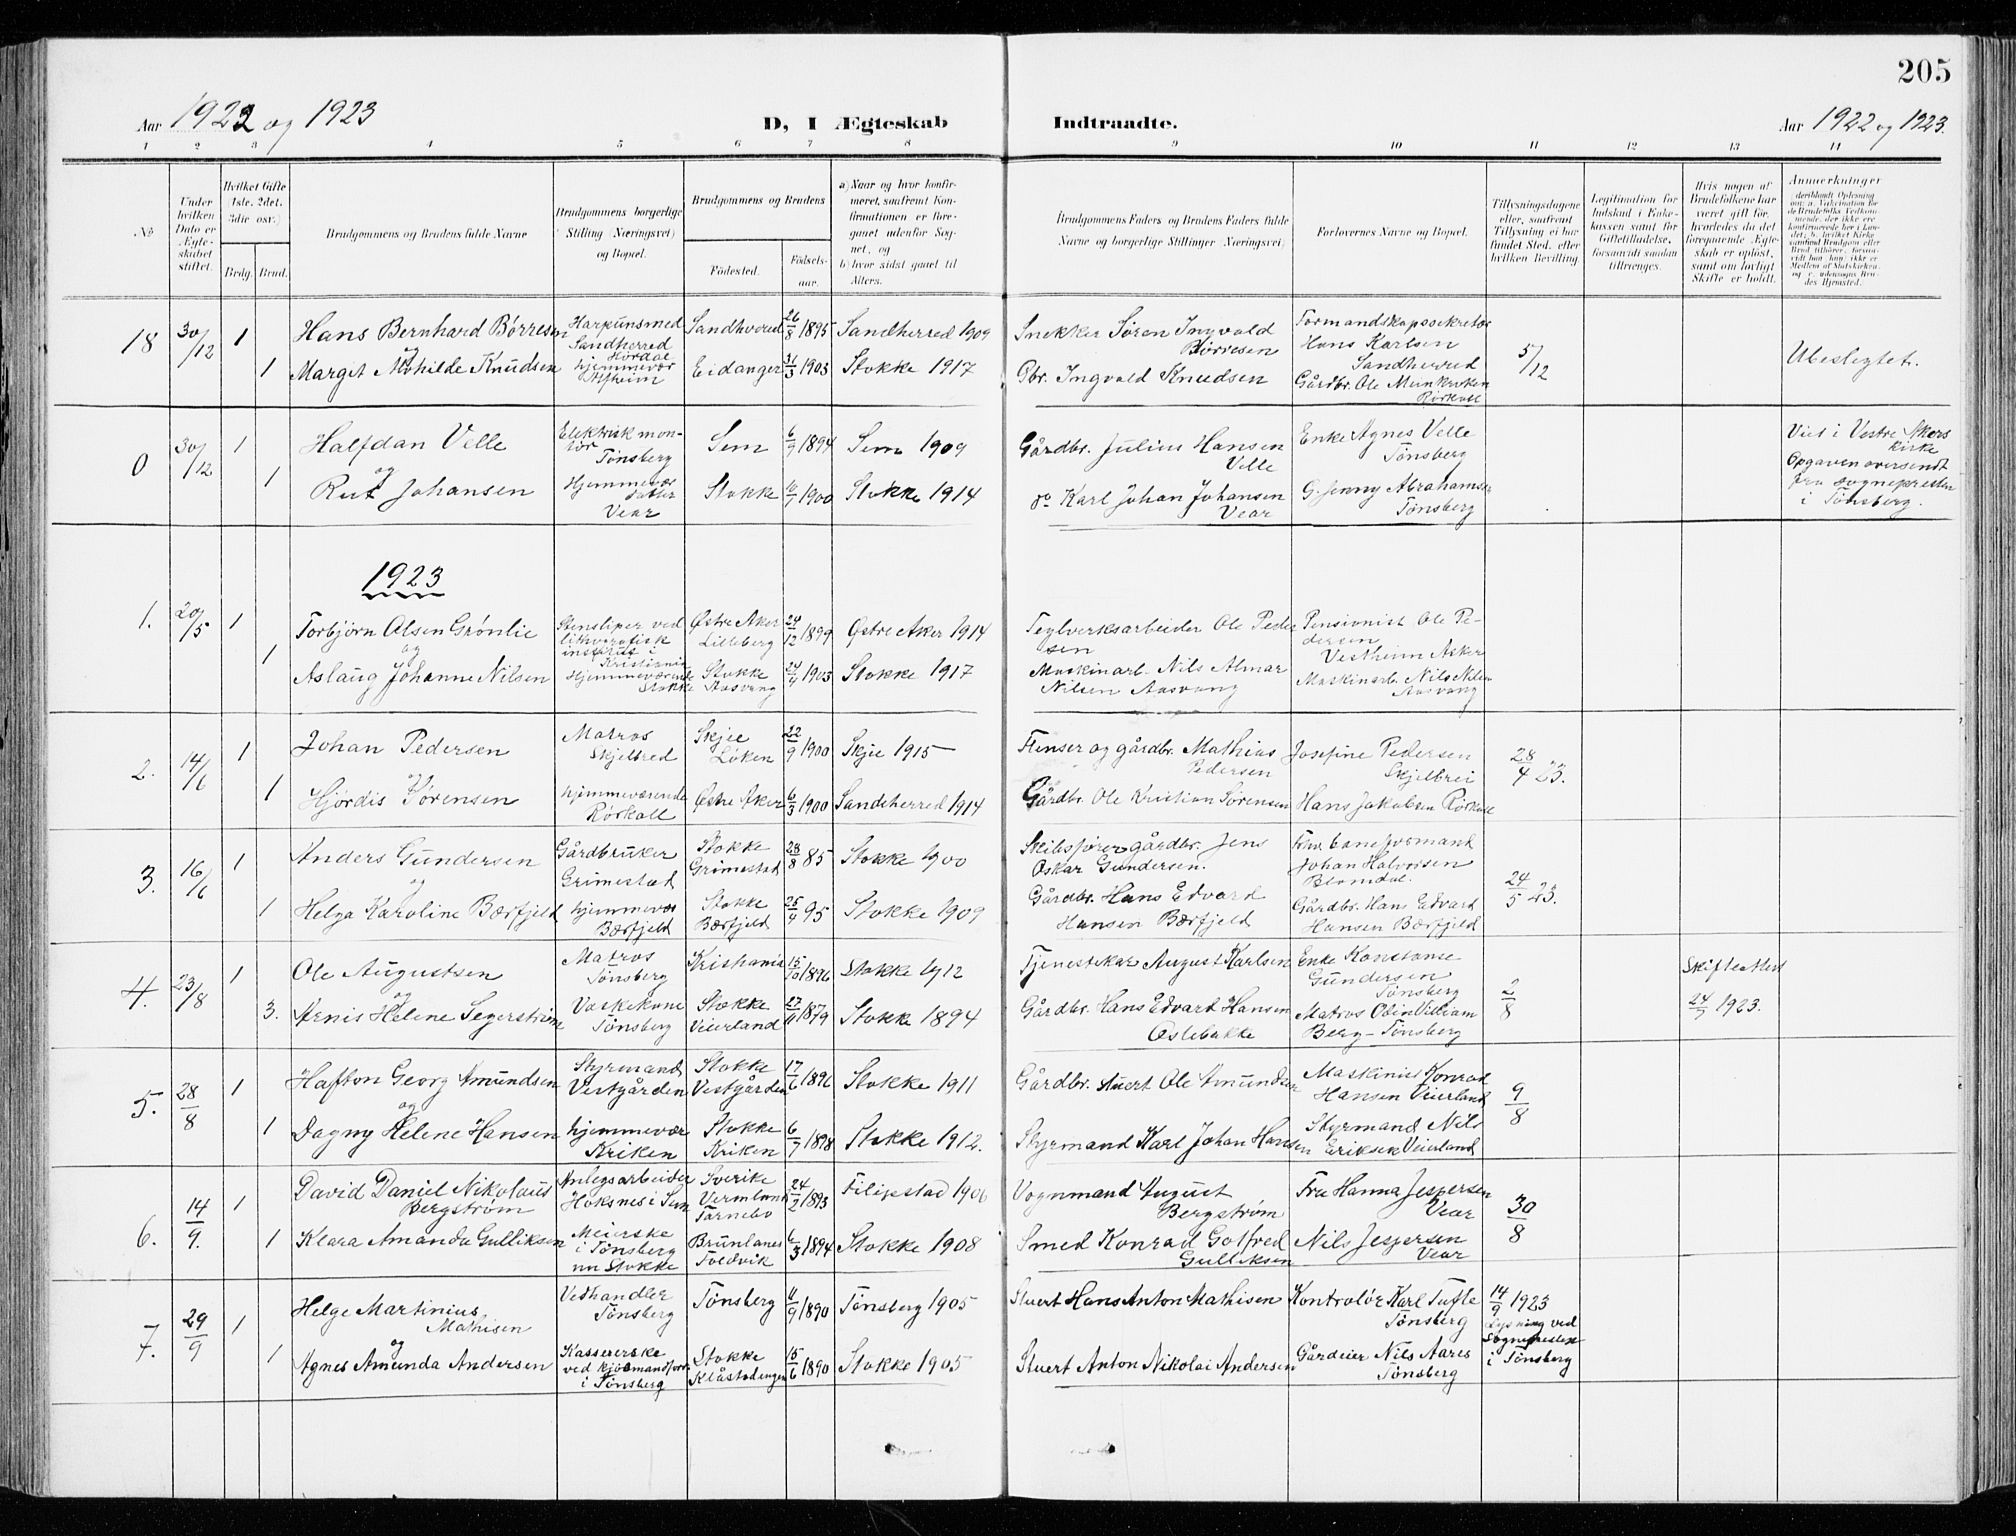 205
Aar 1922 og 1923
D, I Ægteskab
Indtraadte.
Aar 1922 og 1923.
1 2 3 4 5 6 7 8 9 10 11 12 13 14
No
Under hvilken Dato er Ægteskabet stiftet.
Hvilket Gifte (1ste, 2det, 3die osv.)
Brdg. Brud.
Brudgommens og Brudens fulde Navne
Brudgommens borgerlige Stilling (Næringsvei) og Bopæl.
Brudgommens og Brudens
Födested. Födselsaar.
a) Naar og hvor konfirmeret, saafremt Konfirmationen er foregaaet udenfor Sognet, og
b) hvor sidst gaaet til Alters.
Brudgommens Faders og Brudens Faders fulde Navne og borgerlige Stillinger (Næringsvei)
Forlovernes Navne og Bopæl.
Tillysningsdagene eller, saafremt Tillysning ei har fundet Sted, efter hvilken Bevilling.
Legitimation for Indskud i Enkekassen samt for Giftetilladelse, forsaavidt saadan tiltrænges.
Hvis nogen af Brudefolkene har været gift før, hvorledes da det foregaaende Ægteskab er opløst, samt om lovligt Skifte er holdt.
Anmerkninger
18 30/12 1 Hans Bernhard Børresen Harpunsmed Sandherred Sandherred 26/8 1895 Sandherred 1909
og
1 Margit Mathilde Knudsen hjemmevær Eidanger 31/3 1903 Stokke 1917
Snekker Søren Ingvald Børresen
Gbr. Ingvald Knudsen
Formandskapssekretær Hans Karlsen Sandherred
Gårdbr. Ole
5/12
Ubeslegtet.
0 30/12 1 Halfdan Velle Elektrisk montør Tønsberg Sem 6/9 1894 Sem 1909
og
1 Rut Johansen Hjemmevær datter Vear Stokke 6/7 1900 Stokke 1914
Gårdbr. Julius Hansen Velle
do Karl Johan Johansen Vear
Enke Agnes Velle Tønsberg
G. Jenny Abrahamsen Tønsberg
Viet i Vestre Akers Kirke
Opgaven oversendt
fra sognepresten
i Tønsberg.
1923
1. 20/5 1 Torbjörn Olsen Grönlie Stensliper ved litografisk institut i Kristiania Østre Aker Lilleberg 24/12 1899 Østre Aker 1914
og
1 Aslaug Johanne Nilsen Hjemmeværende Stokke Stokke Aasvang 24/4 1903 Stokke 1917
Teglverksarbeider Ole Pedersen
Maskinarb. Nils Almar Nilsen Aasvang
Pensionist Ole Pedersen Vestheim Asker
Maskinarb. Nils Nilsen Aasvang
2. 14/6 1 Johan Pedersen Matros Skjelbred Skjee Løken 22/9 1900 Skjee 1915
og
1 Hjördis Sørensen hjemmeværende Rørkoll Østre Aker 6/3 1900 Sandeherred 1914
Flenser og gårdbr. Mathias Pedersen
Gårdbr. Ole Kristian Sørensen
Josefine Pedersen Skjelbrei
Hans Jakobsen Rørkoll
28/4 23.
3. 16/6 1 Anders Gundersen Gårdbruker Grimestad Stokke Grimestad 28/8 85 Stokke 1900
og
1 Helga Karoline Bærfjeld hjemmevær Bærfjeld Stokke Bærfjeld 25/4 95 Stokke 1909
Skibsfører gårdbr. Jens Oskar Gundersen.
Gårdbr. Hans Edvard Hansen Bærfjeld
Johan Halvorsen Blomdal.
Gårdbr. Hans Edvart Hansen Bærfjeld
24/5 23.
4. 23/8 1 Ole Augustsen Matros Tønsberg Kristiania 15/10 1896 Stokke 1912
og
3. Arnis Helene Segerstrøm Vaskekone Tønsberg Stokke Veierland 27/11 1879 Stokke 1894
Tjenestekar August Karlsen
Gårdbr. Hans Edvart Hansen Oslebakke
Enke Konstanse Gundersen Tønsberg
Matros Odin Villiam Berg - Tønsberg
2/8
Skifteattest 24/7 1923.
5. 28/8 1 Hafton Georg Amundsen Styrmand Vestgården Stokke Vestgården 17/6 1896 Stokke 1911
og
1 Dagny Helene Hansen hjemmevær Kriken Stokke Kriken 6/7 1898 Stokke 1912.
Gårdbr. Stuert Ole Amundsen
Styrmand Karl Johan Hansen
Maskinist Konrad Hansen Veierland
Styrmand Nils Eriksen Veierland
9/8
6. 14/9. 1 David Daniel Nikolaus Bergstrøm Anlegsarbeider Hoksnes i Sem Sverike Vermland Färnebo 24/2 1893 Filipstad 1906
1 Klara Amanda Gulliksen Meierske i Tønsberg nu Stokke Brunlanes Foldvik 6/3 1894 Stokke 1908
Vognmand August Bergstrøm
Smed Konrad Gotfred Gulliksen
Fru Hanna Jespersen Vear
Nils Jespersen Vear
30/8
7. 29/9 1 Helge Martinius Mathisen Vedhandler Tønsberg Tønsberg 11/9 1890 Tønsberg 1905
og
1 Agnes Amunda Andersen Kassererske ved i Tønsberg Stokke Klåstadengen 15/6 1890 Stokke 1905
Stuert Hans Anton Mathisen
Stuert Anton Nikolai Andersen
Kontrolør Karl Tufte Tønsberg
Gårdeier Nils Aares Tønsberg
14/9 1923
Lysning ved
Sognepresten
i Tønsberg